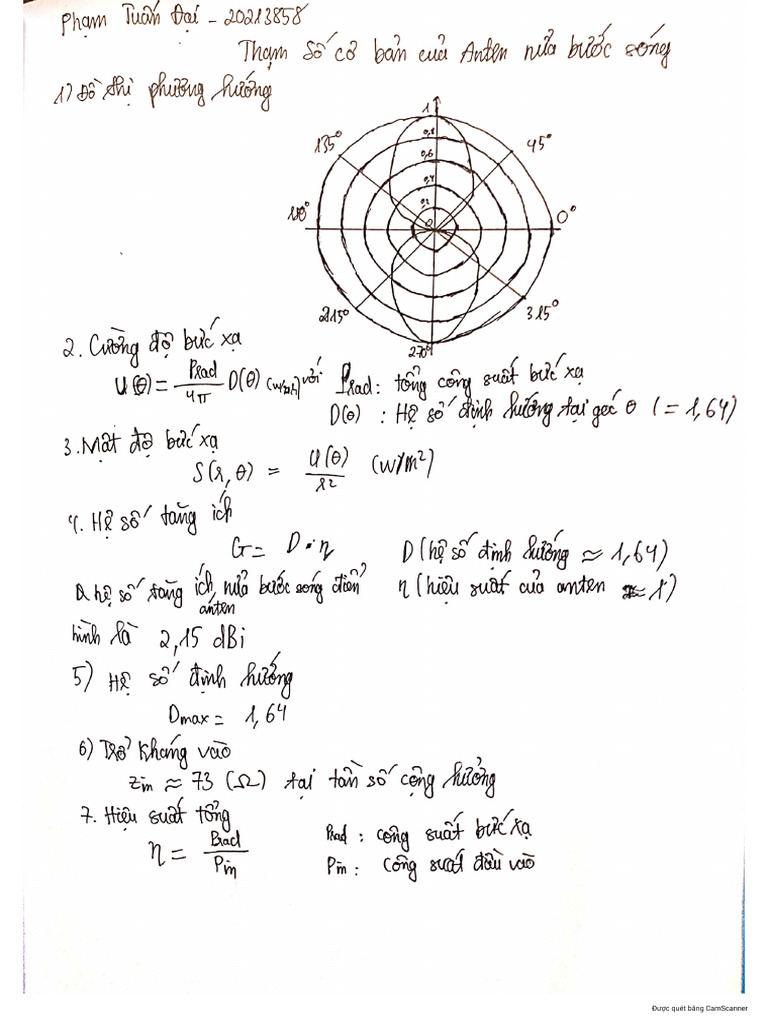 Phạm Tuấn Đại - 20213858
Tham số cơ bản của Anten nửa bước sóng
1) Đồ thị phương hướng
1
0,8
0,6
0,4
0,2
0
135°
45°
180°
0°
215°
315°
270°
2. Cường độ bức xạ
U(θ) = Prad / 4π D(θ) (W/sr) với Prad: tổng công suất bức xạ
D(θ) : Hệ số định hướng tại góc θ (= 1,64)
3. Mật độ bức xạ
S(r, θ) = U(θ) / r² (W/m²)
4. Hệ số tăng ích
G = D · η D (hệ số định hướng ≈ 1,64)
hệ số tăng ích anten nửa bước sóng điển η (hiệu suất của anten ≈ 1)
hình là 2,15 dBi
5) Hệ số định hướng
Dmax = 1,64
6) Trở kháng vào
Zin ≈ 73 (Ω) tại tần số cộng hưởng
7. Hiệu suất tổng
η = Prad / Pin Prad : công suất bức xạ
Pin : công suất đầu vào
Được quét bằng CamScanner